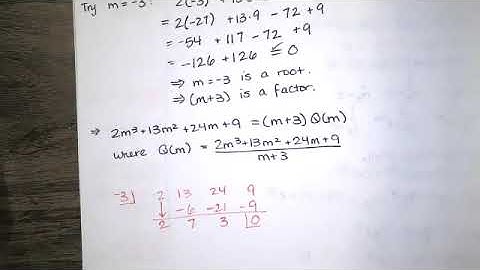 Try m = -3 : 2(-3) + 13
= 2(-27) + 13·9 - 72 + 9
= -54 + 117 - 72 + 9
= -126 + 126 = 0
⇒ m = -3 is a root.
⇒ (m+3) is a factor.
⇒ 2m³ + 13m² + 24m + 9 = (m+3) Q(m)
where Q(m) = 2m³ + 13m² + 24m + 9
m+3
-3| 2 13 24 9
↓ -6 -21 -9
2 7 3 |0